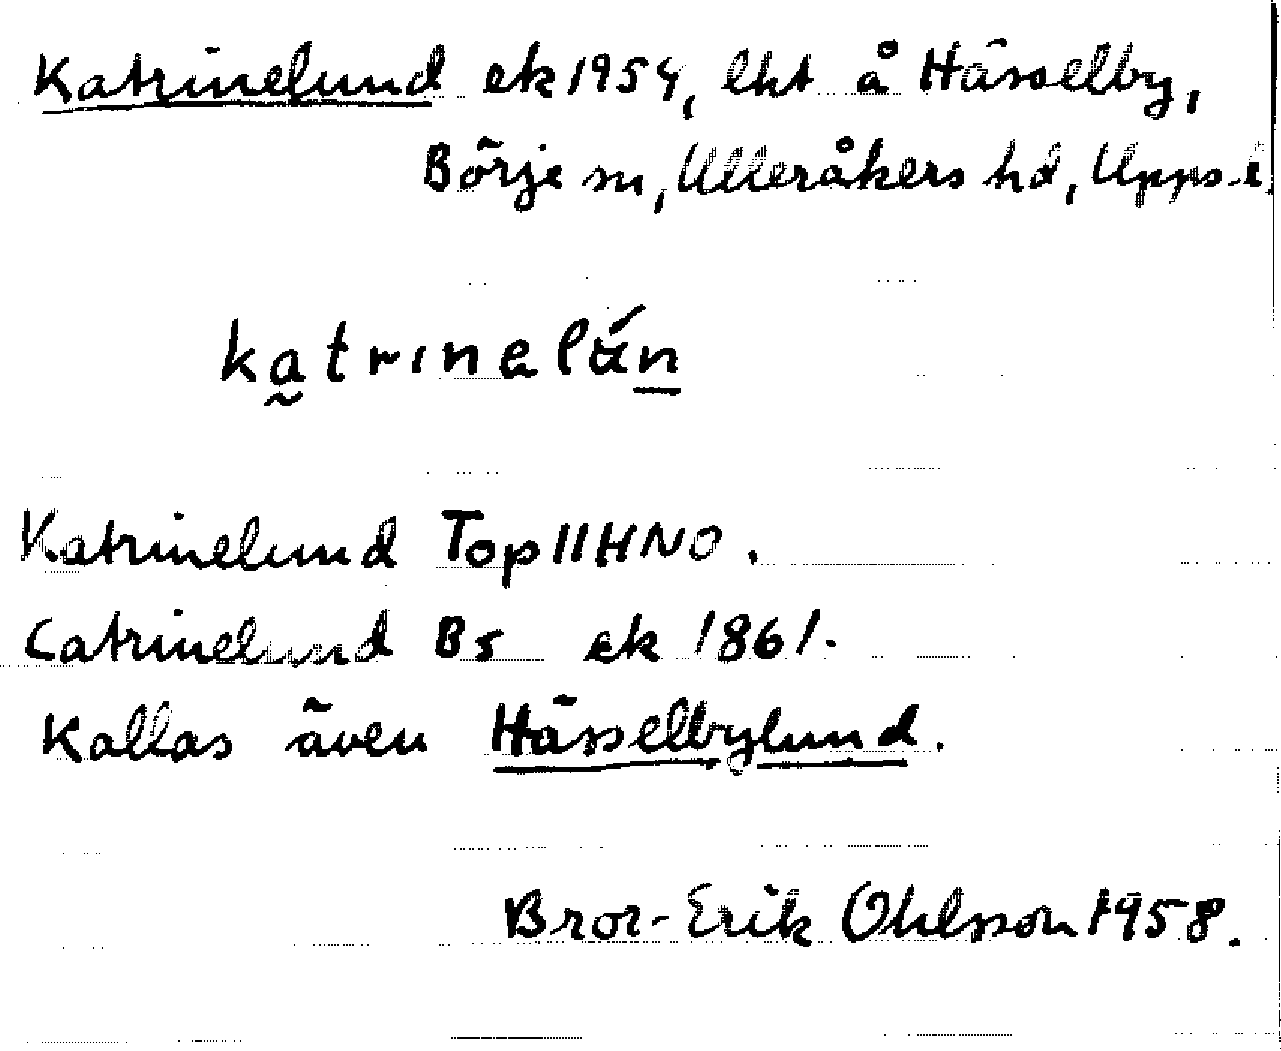 Katrinelund ek 1954, lht å Hässelby,
Börje sn, Ulleråkers hd, Upps. l.
katrinelún
Katrinelund Top II H NO.
Catrinelund Bs ek 1861.
Kallas även Hässelbylund.
Bror-Erik Ohlsson 1958.